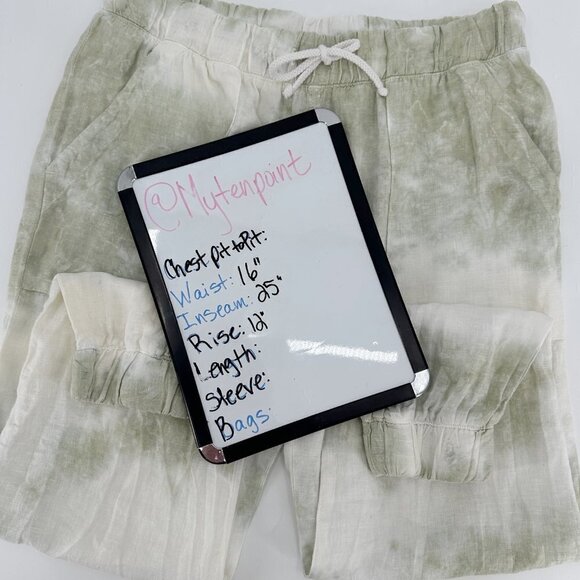 @Mytenpoint
Chest pit to Pit:
Waist: 16"
Inseam: 25"
Rise: 12"
Length:
Sleeve:
Bags: